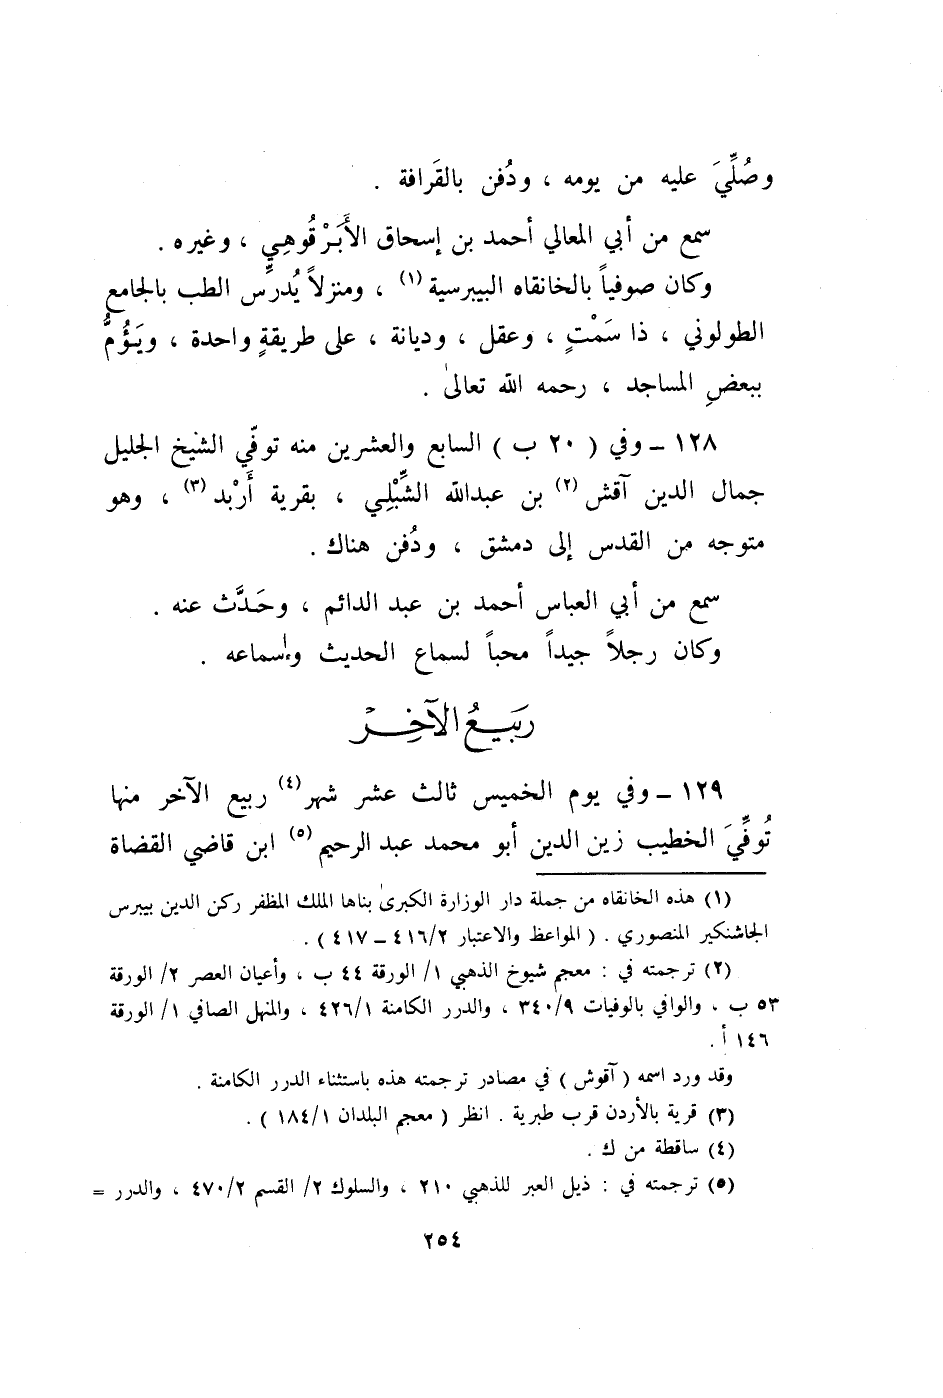 وصُلِّيَ عليه من يومه ، ودُفن بالقَرافة .
سمع من أبي المعالي أحمد بن إسحاق الأَبَرْقُوهِي ، وغيره .
وكان صوفياً بالخانقاه البيبرسية (١) ، ومنزلاً يُدرِّس الطب بالجامع
الطولوني ، ذا سَمْتٍ ، وعقل ، وديانة ، على طريقةٍ واحدة ، ويَؤُمُّ
ببعضِ المساجد ، رحمه الله تعالىٰ .
١٢٨ ـ وفي ( ٢٠ ب ) السابع والعشرين منه توفّي الشيخ الجليل
جمال الدين آقش (٢) بن عبدالله الشِّبْلِي ، بقرية أَرْبد (٣) ، وهو
متوجه من القدس إلى دمشق ، ودُفن هناك .
سمع من أبي العباس أحمد بن عبد الدائم ، وحَدَّث عنه .
وكان رجلاً جيداً محباً لسماع الحديث وإسماعه .
رَبيعُ الآخِر
١٢٩ ـ وفي يوم الخميس ثالث عشر شهر (٤) ربيع الآخر منها
تُوفِّيَ الخطيب زين الدين أبو محمد عبد الرحيم (٥) ابن قاضي القضاة
(١) هذه الخانقاه من جملة دار الوزارة الكبرىٰ بناها الملك المظفر ركن الدين بيبرس
الجاشنكير المنصوري . ( المواعظ والاعتبار ٤١٦/٢ ـ ٤١٧ ) .
(٢) ترجمته في : معجم شيوخ الذهبي ١/ الورقة ٤٤ ب ، وأعيان العصر ٢/ الورقة
٥٣ ب ، والوافي بالوفيات ٣٤٠/٩ ، والدرر الكامنة ٤٢٦/١ ، والمنهل الصافي ١/ الورقة
١٤٦ أ .
وقد ورد اسمه ( آقوش ) في مصادر ترجمته هذه باستثناء الدرر الكامنة .
(٣) قرية بالأردن قرب طبرية . انظر ( معجم البلدان ١٨٤/١ ) .
(٤) ساقطة من ك .
(٥) ترجمته في : ذيل العبر للذهبي ٢١٠ ، والسلوك ٢/ القسم ٤٧٠/٢ ، والدرر =
٢٥٤